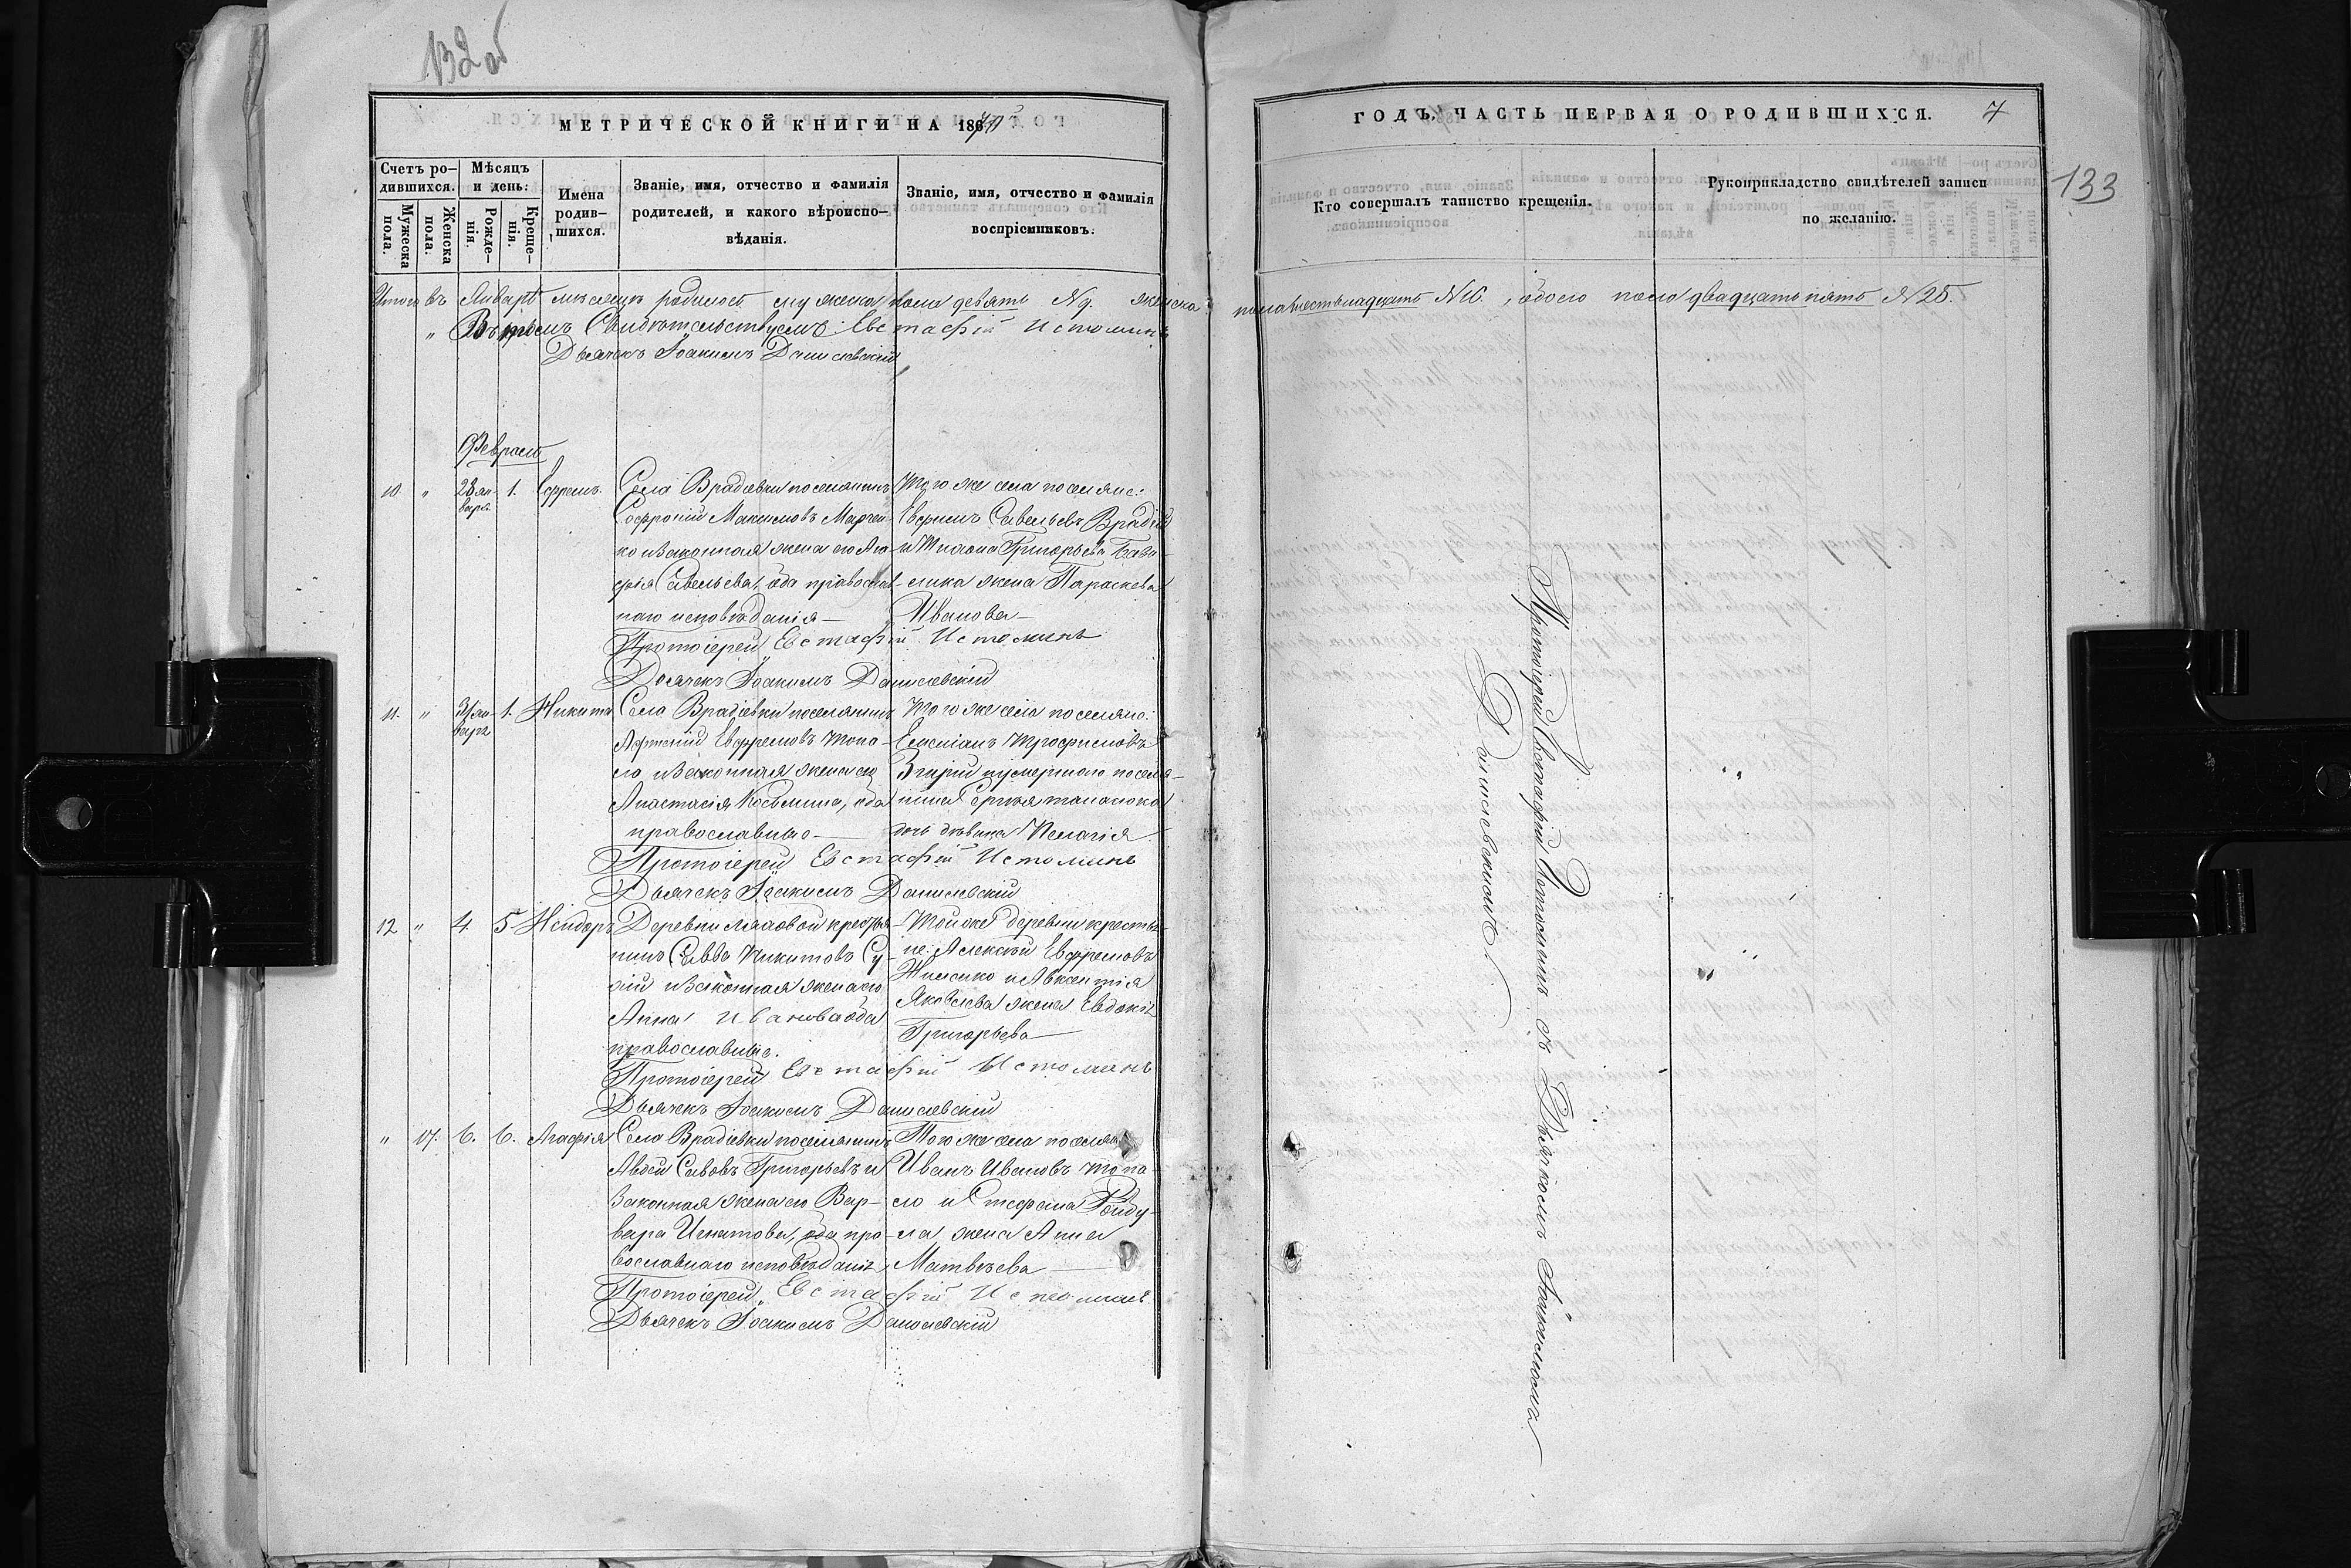 132 об
МЕТРИЧЕСКОЙ КНИГИ НА 1870
ГОДЪ, ЧАСТЬ ПЕРВАЯ О РОДИВШИХСЯ. 7
133
Счетъ ро-
дившихся.
Мужеска пола.
Женска пола.
Мѣсяцъ
и день:
Рожде-
нія.
Креще-
нія.
Имена
родив-
шихся.
Званіе, имя, отчество и фамилія
родителей, и какого вѣроиспо-
вѣданія.
Званіе, имя, отчество и фамилія
воспріемниковъ.
Кто совершалъ таинство крещенія.
Рукоприкладство свидѣтелей записи
по желанію.
Итого въ Январѣ месяцѣ родилось мужеска пола девять №9. женска пола шестьнадцать №16. обоего пола двадцать пять №25.
Въ чемъ Свидѣтельствуемъ: Евстафій Истоминъ
Дьячекъ Іоакимъ Данилевскій
Февраль
10. " 28 ян-
варя 1. Ефремъ.
Села Врадіевки поселянинъ
Софроній Максимовъ Марчен-
ко и законная жена его Ага-
фія Савельева, оба православ-
наго исповѣданія —
Того же села поселяне:
Савельевъ Врадій
и Григорьева
жена Параскева
Иванова —
Протоіерей Евстафій Истоминъ
Дьячекъ Іоакимъ Данилевскій
11. " 31 ян-
варя 1. Никита
Села Врадіевки поселянинъ
Евфремовъ Топа-
ло и законная жена его
Анастасія Косьмина, оба
православные —
Того же села поселяне:
Емеліанъ Трофимовъ
и умершаго поселя-
нина Сергѣя
дочь дѣвица Пелагія
Протоіерей Евстафій Истоминъ
Дьячекъ Іоакимъ Данилевскій
12 " 4 5 Исидоръ
Деревни крестья-
нинъ Савва Никитовъ Су-
и законная жена его
Анна Иванова оба
православные.
Той же деревни крестья-
не: Алексѣй Евфремовъ
и Авксентія
Яковлева жена Евдокія
Григорьева —
Протоіерей Евстафій Истоминъ
Дьячекъ Іоакимъ Данилевскій
" 17. 6. 6. Агафія
Села Врадіевки поселянинъ
Авдей Саввовъ Григорьевъ и
законная жена его Вар-
вара Игнатова, оба пра-
вославнаго исповѣданія
Того же села поселяне
Иванъ Ивановъ Топа-
ло и Стефана Гайду-
ла жена Анна
Матвѣева —
Протоіерей Евстафій Истоминъ
Дьячекъ Іоакимъ Данилевскій
Протоіерей Евстафій Истоминъ съ Дьячкомъ Іоакимомъ
Данилевскимъ.